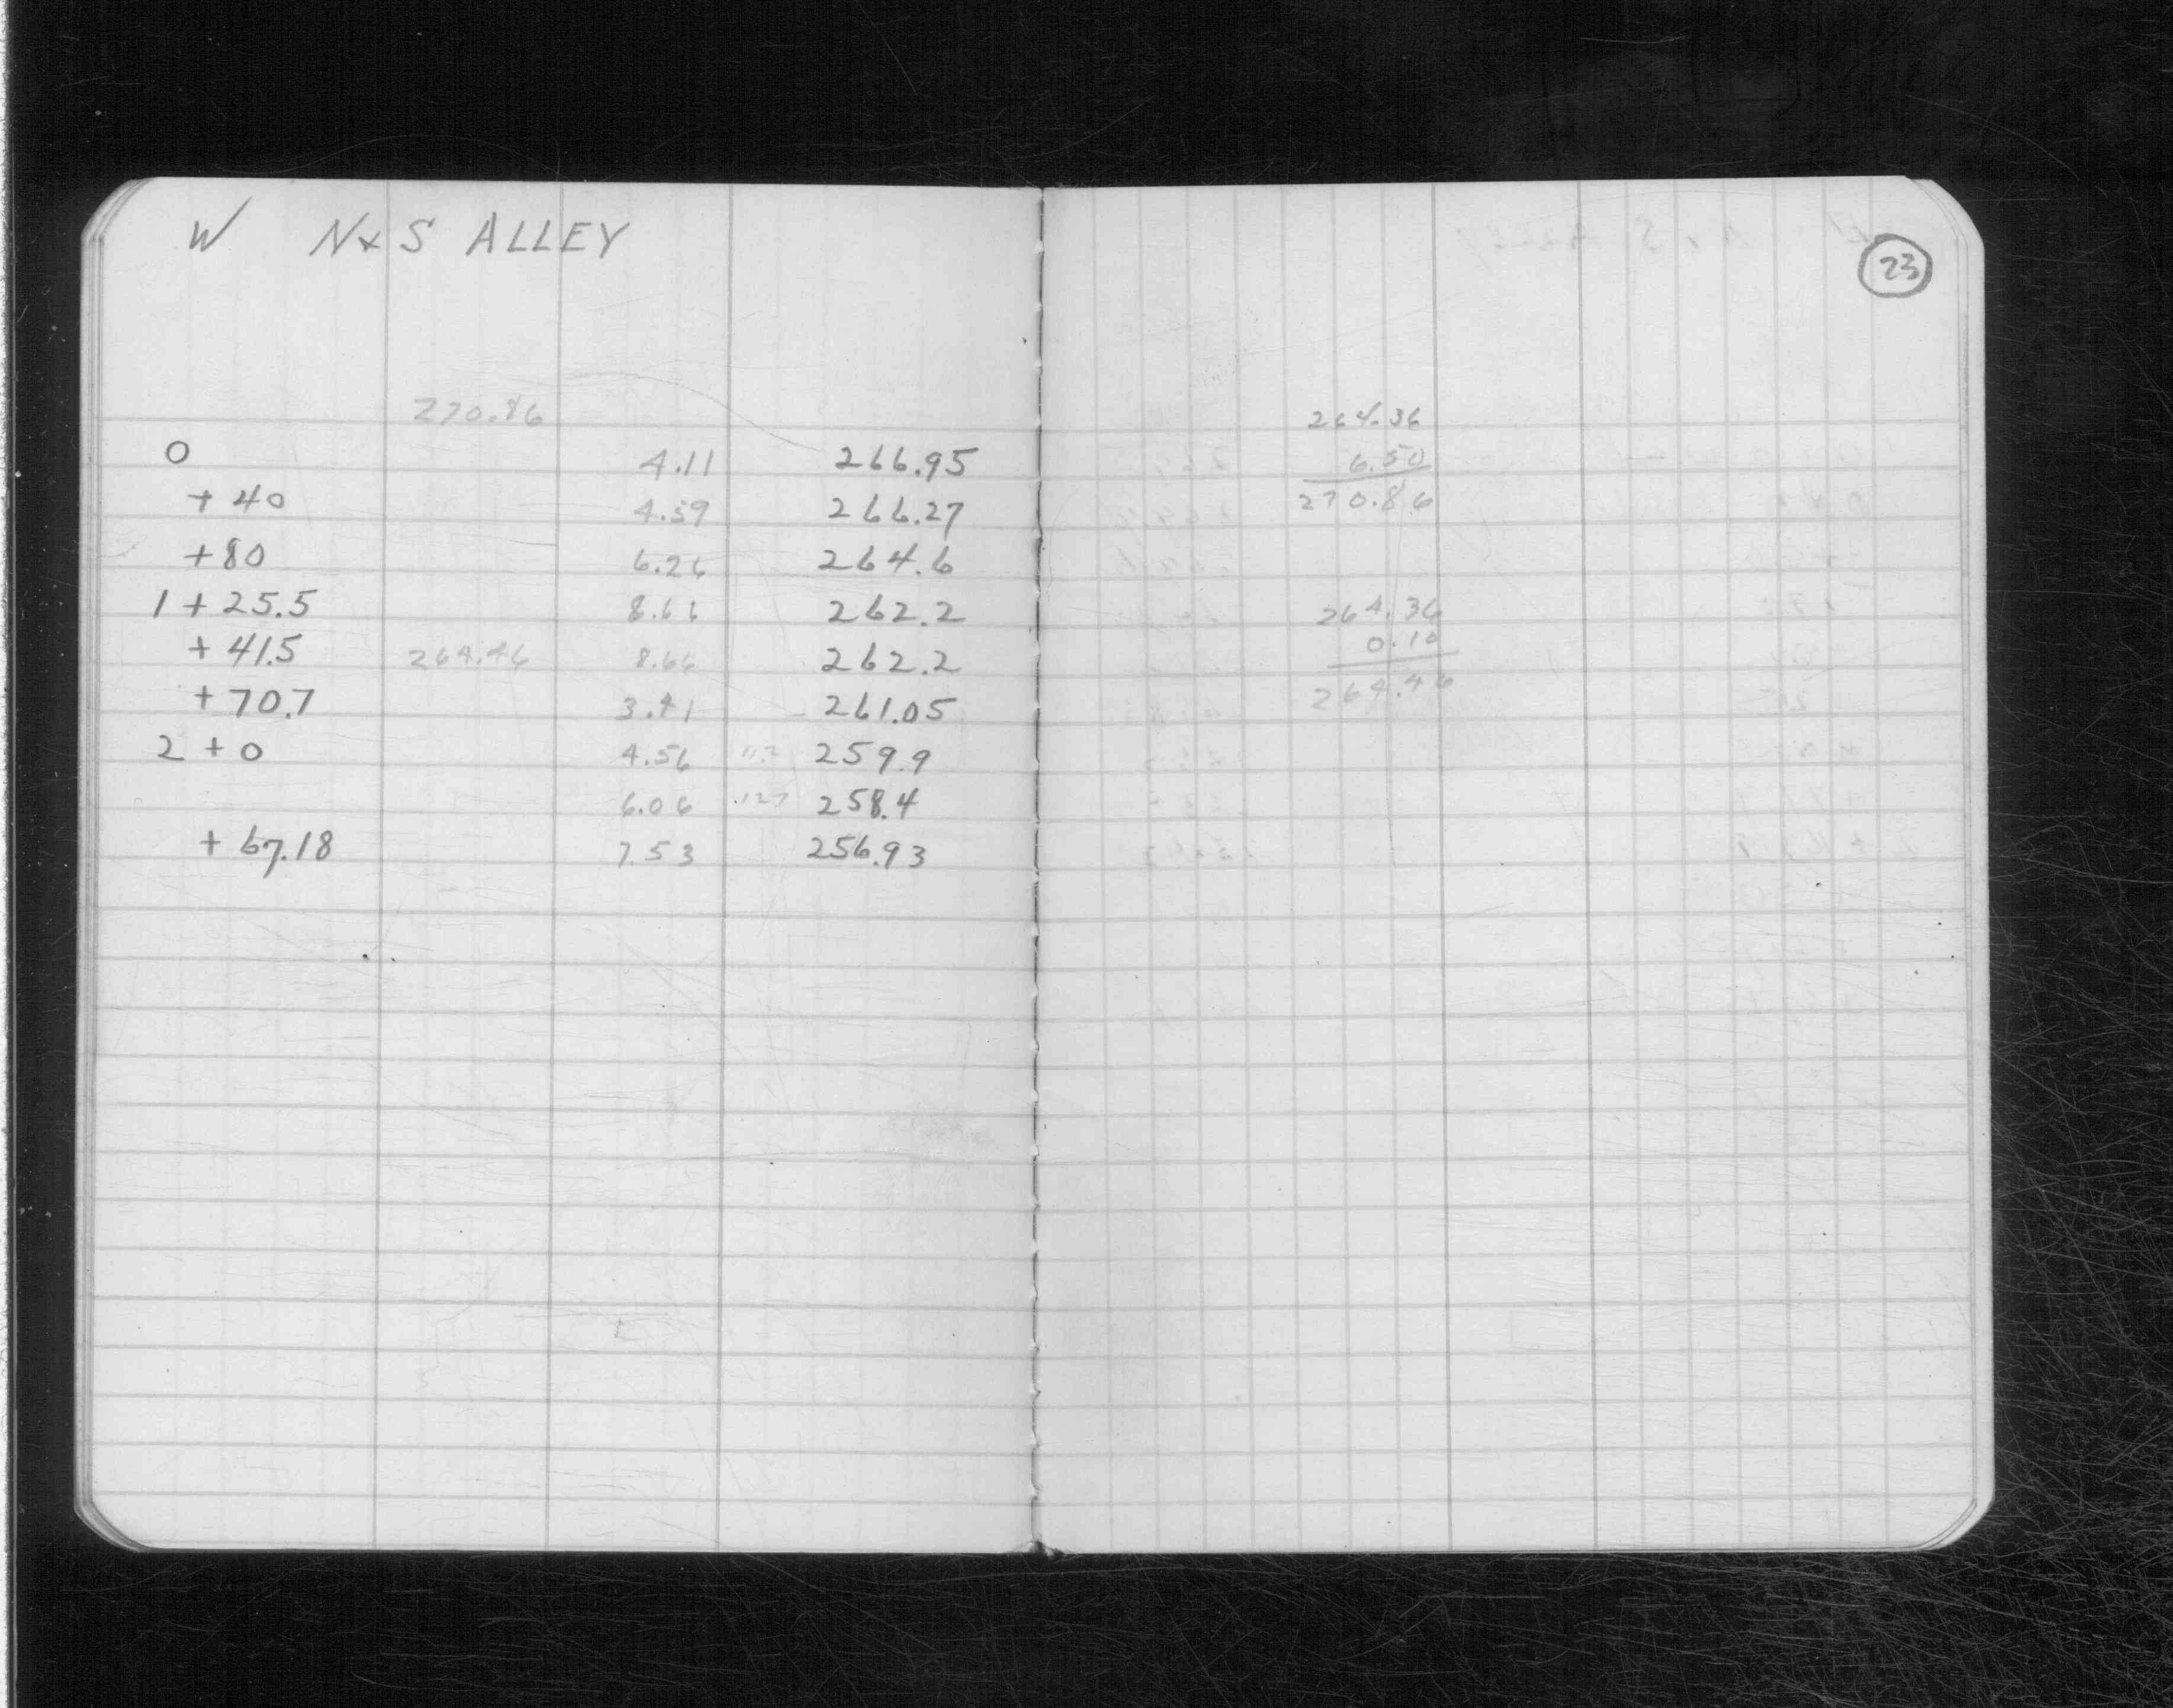 W N & S ALLEY
270.86
0 4.11 266.95
+ 40 4.59 266.27
+ 80 6.26 264.6
1 + 25.5 8.66 262.2
+ 41.5 264.46 8.66 262.2
+ 70.7 3.41 261.05
2 + 0 4.56 259.9
6.06 258.4
+ 67.18 7.53 256.93
23
264.36
6.50
270.86
264.36
0.10
264.46